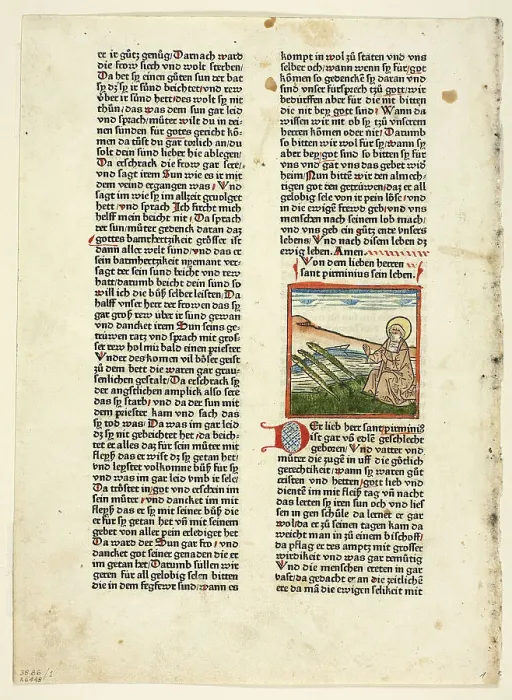 er ir gůtz genůg/Darnach ward
die frow siech vnd wolt sterben/
Da bet sy einen gůten sun der bat
sy dz sy ir sünd beichtet/vnd rew
über ir sünd hett/des wolt sy nit
thůn/das was dem sun gar leid
vnd sprach/můter wilt du in dei-
nen sunden für gottes gericht kō-
men da tůst du gar torlich an/du
solt dein sünd lieber hie ablegen/
Da erschrack die frow gar seer/
vnd sagt irem Sun wie es ir mit
dem veind ergangen was/Vnd
sagt im wie sy im allzeit geuolget
hett/vnd sprach Ich fürcht mich
helff mein beicht nit/Da sprach
der sun/můter gedenck daran daz
gottes barmhertzikeit grösser ist
dann aller welt sünd/vnd das er
sein barmhertzikeit nyemant ver-
sagt der sein sünd beicht vnd rew
hatt/darumb beicht dein sünd so
will ich die bůß selber leisten/Da
halff vnser herr der frowen das sy
gar groß rew über ir sünd gewan
vnd dancket irem Sun seins ge-
trüwen ratz vnd sprach mit gros-
ser rew hol mir bald einen priester
Vnder des komen vil böser geist
zů dem bett die waren gar grau-
senlichen gestalt/Da erschrack sy
der angstlichen amplick also seer
das sy starb/vnd da der sun mit
dem priester kam vnd sach das
sy tod was/Da was im gar leid
dz sy nit gebeichtet het/da beich-
tet er alles daz für sein můter mit
fleyß das er wist dz sy getan het/
vnd leystet volkomne bůß für sy
vnd was im gar leid vmb ir sele/
Da tröstet in got vnd erschein im
sein můter/vnd dancket im mit
fleyß das er sy mit seiner bůß die
er für sy getan het vn̄ mit seinem
gebet von aller pein erlediget het
Da ward der Sun gar fro/vnd
dancket got seiner genaden die er
im getan het/Darumb süllen wir
geren für all gelobig selen bitten
die in dem fegfewr sind/wann es
kompt in wol zů staten vnd vns
selber och/wann wenn sy für got
kömen so gedencken sy daran vnd
sind vnser fürsprech tzů gott/wir
bedürffen aber für die nit bitten
die nit bey gott sind/Wann da
wissen wir nit ob sy tzů vnserem
herren kömen oder nit/Darumb
so bitten wir wol für sy/wann sy
aber bey got sind so bitten sy für
vns vnd gat vns das gebet wid̄
heim/Nun bitt wir den almech-
tigen got den getrüwen/daz er all
gelobig sele von ir pein löse/vnd
in die ewige frewd geb/vnd vns
menschen nach seinem lob mach/
vnd vns geb ein gůtz ende vnsers
lebens/Vnd nach disem leben dz
ewig leben. Amen.
Von dem lieben herren
sant pirminius sein leben.
DEr lieb herr sant pirminiꝰ
ist gar vō edlē geschlecht
geboren/Vnd vatter vnd
můter die zugē in uff die götlich
gerechtikeit/wann sy waren gůt
cristen vnd hetten got lieb vnd
dientē im mit fleiß tag vn̄ nacht
das lerten sy iren sun och vnd lies-
sen in gen schůle da lernet er gar
wol/da er zů seinen tagen kam da
weicht man in zů einem bischoff/
da pflag er des amptz mit grosser
wirdikeit vnd was gar demütig
Vnd die menschen ereten in gar
vast/da gedacht er an die zeitlichē
ere da mā die ewigen selikeit mit
38.86/1
1